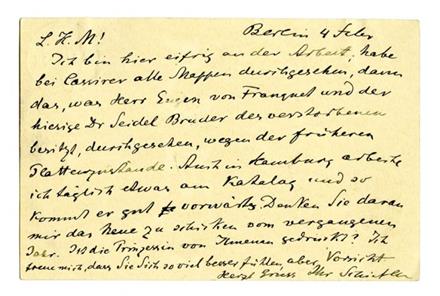 Berlin 4 Febr
L. H. M!
Ich bin hier eifrig an der Arbeit, habe
bei Cassirer alle Mappen durchgesehen, dann
das, was Herr Eugen von Franquet und der
hiesige Dr Seidel Bruder des verstorbenen
besitzt, durchgesehen, wegen der früheren
Plattenzustände. Auch in Hamburg arbeite
ich täglich etwas am Katalog und so
kommt er gut vorwärts. Denken Sie daran
mir das Neue zu schicken vom vergangenen
Jahr. Ist die Prinzessin von Ilmenau gedruckt? Ich
freue mich, dass Sie Sich so viel besser fühlen, aber Vorsicht
Herzl Gruss Ihr Schiefler